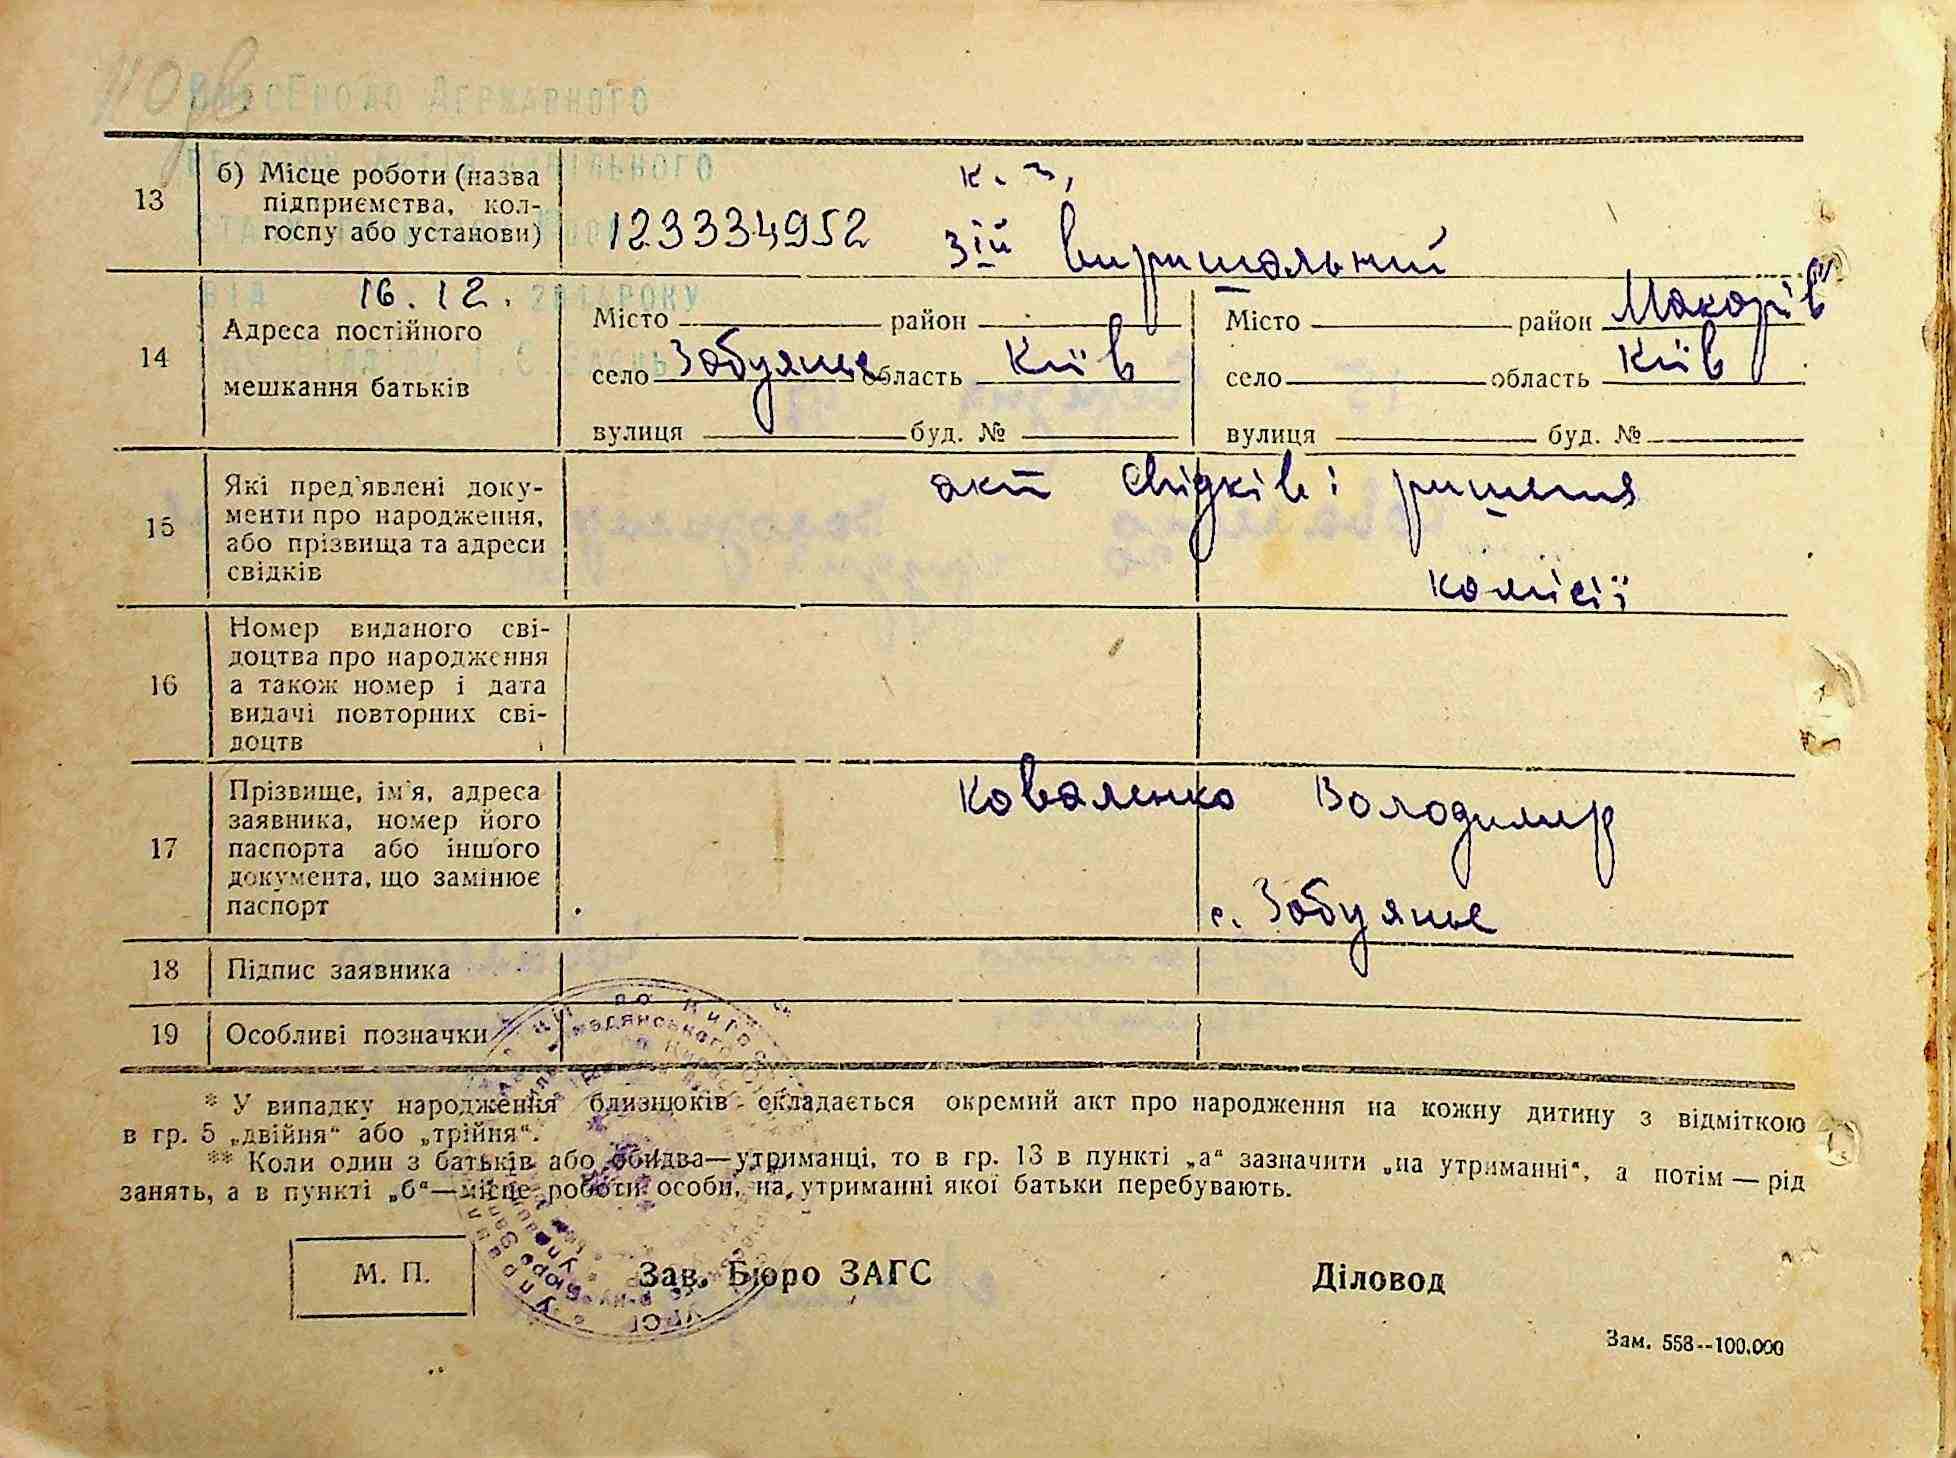 Державного
13 б) Місце роботи (назва підприємства, колгоспу або установи)
к. з,
123334952 3ій вирішальний
16.12.
14 Адреса постійного мешкання батьків
Місто район Місто район Макарів
село Забуяння область Київ село область Київ
вулиця буд. № вулиця буд. №
15 Які пред'явлені доку-
менти про народження,
або прізвища та адреси
свідків
акт свідків і ришення
комісії
16 Номер виданого сві-
доцтва про народження
а також номер і дата
видачі повторних сві-
доцтв
17 Прізвище, ім'я, адреса
заявника, номер його
паспорта або іншого
документа, що замінює
паспорт
Коваленко Володимир
с. Забуяння
18 Підпис заявника
19 Особливі позначки
* У випадку народження близнюків складається окремий акт про народження на кожну дитину з відміткою
в гр. 5 „двійня“ або „трійня“.
** Коли один з батьків або обидва—утриманці, то в гр. 13 в пункті „а“ зазначити „на утриманні“, а потім — рід
занять, а в пункті „б“—місце роботи особи, на утриманні якої батьки перебувають.
М. П. Зав. Бюро ЗАГС Діловод
Зам. 558--100.000